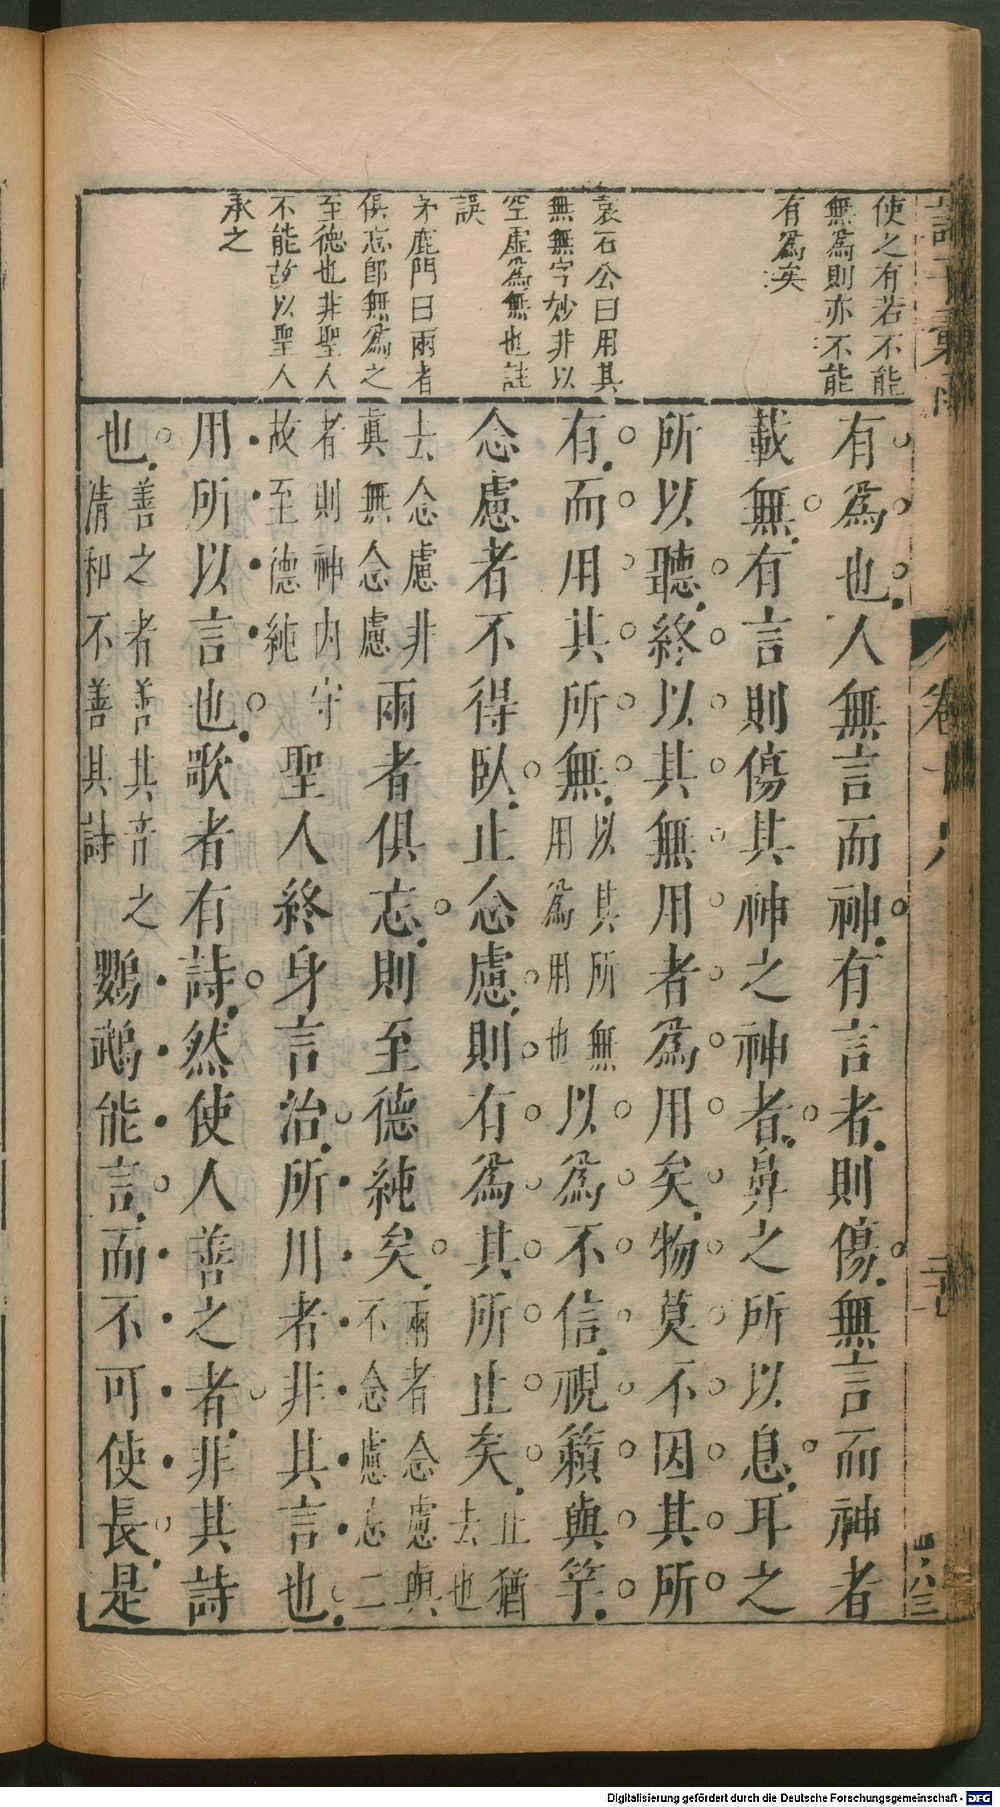 使之有若不能
無為則亦不能
有為矣
袁石公曰用其
無無字妙非以
空虛為無也註
誤
茅鹿門曰兩者
俱忘卽無為之
至德也非聖人
不能故以聖人
承之
有為也人無言而神有言者則傷無言而神者
載無有言則傷其神之神者鼻之所以息耳之
所以聽終以其無用者為用矣物莫不因其所
有而用其所無以其所無用為用也以為不信視籟與竽
念慮者不得臥止念慮則有為其所止矣止猶去也
去念慮非眞無念慮兩者俱忘則至德純矣兩者念慮與不念慮忘二
者則神內守故至德純聖人終身言治所用者非其言也
用所以言也歌者有詩然使人善之者非其詩
也善之者善其音之清和不善其詩鸚鵡能言而不可使長是
卷十八
Digitalisierung gefördert durch die Deutsche Forschungsgemeinschaft - DFG